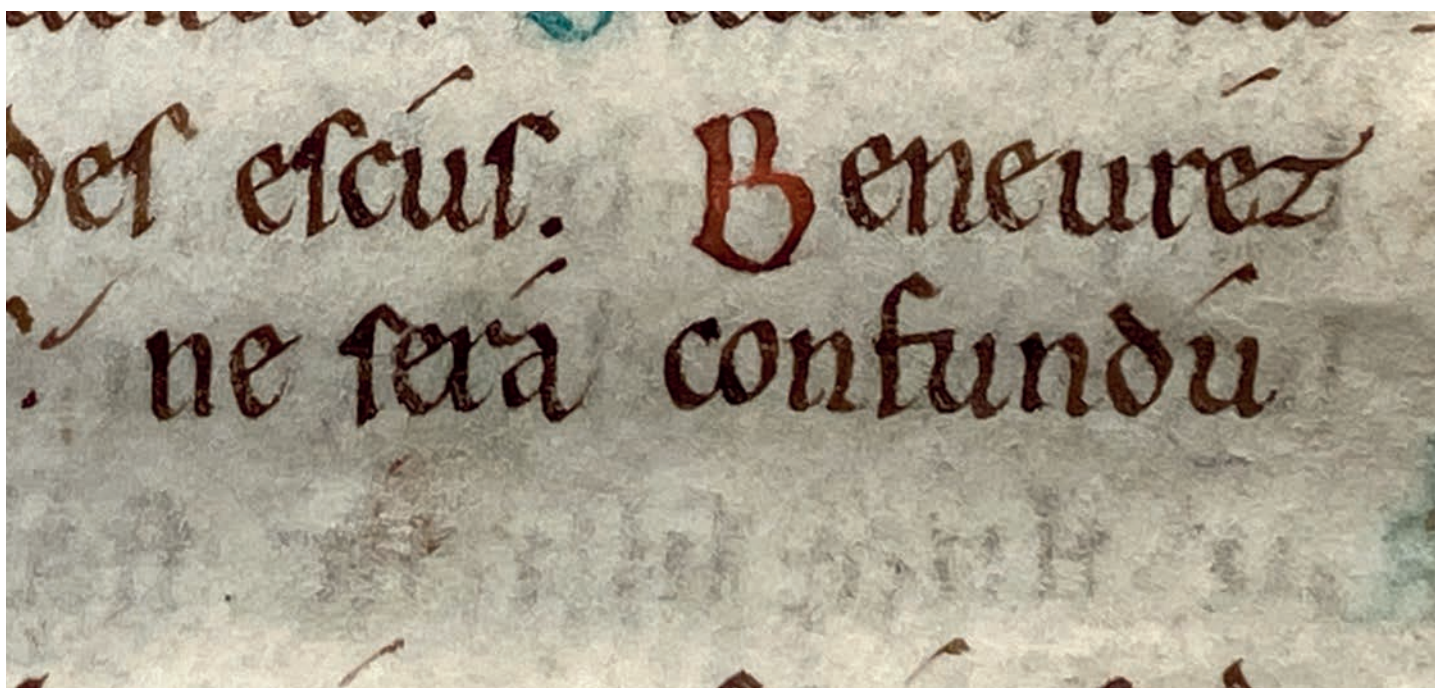 des escús. Beneurez
ne será confundú